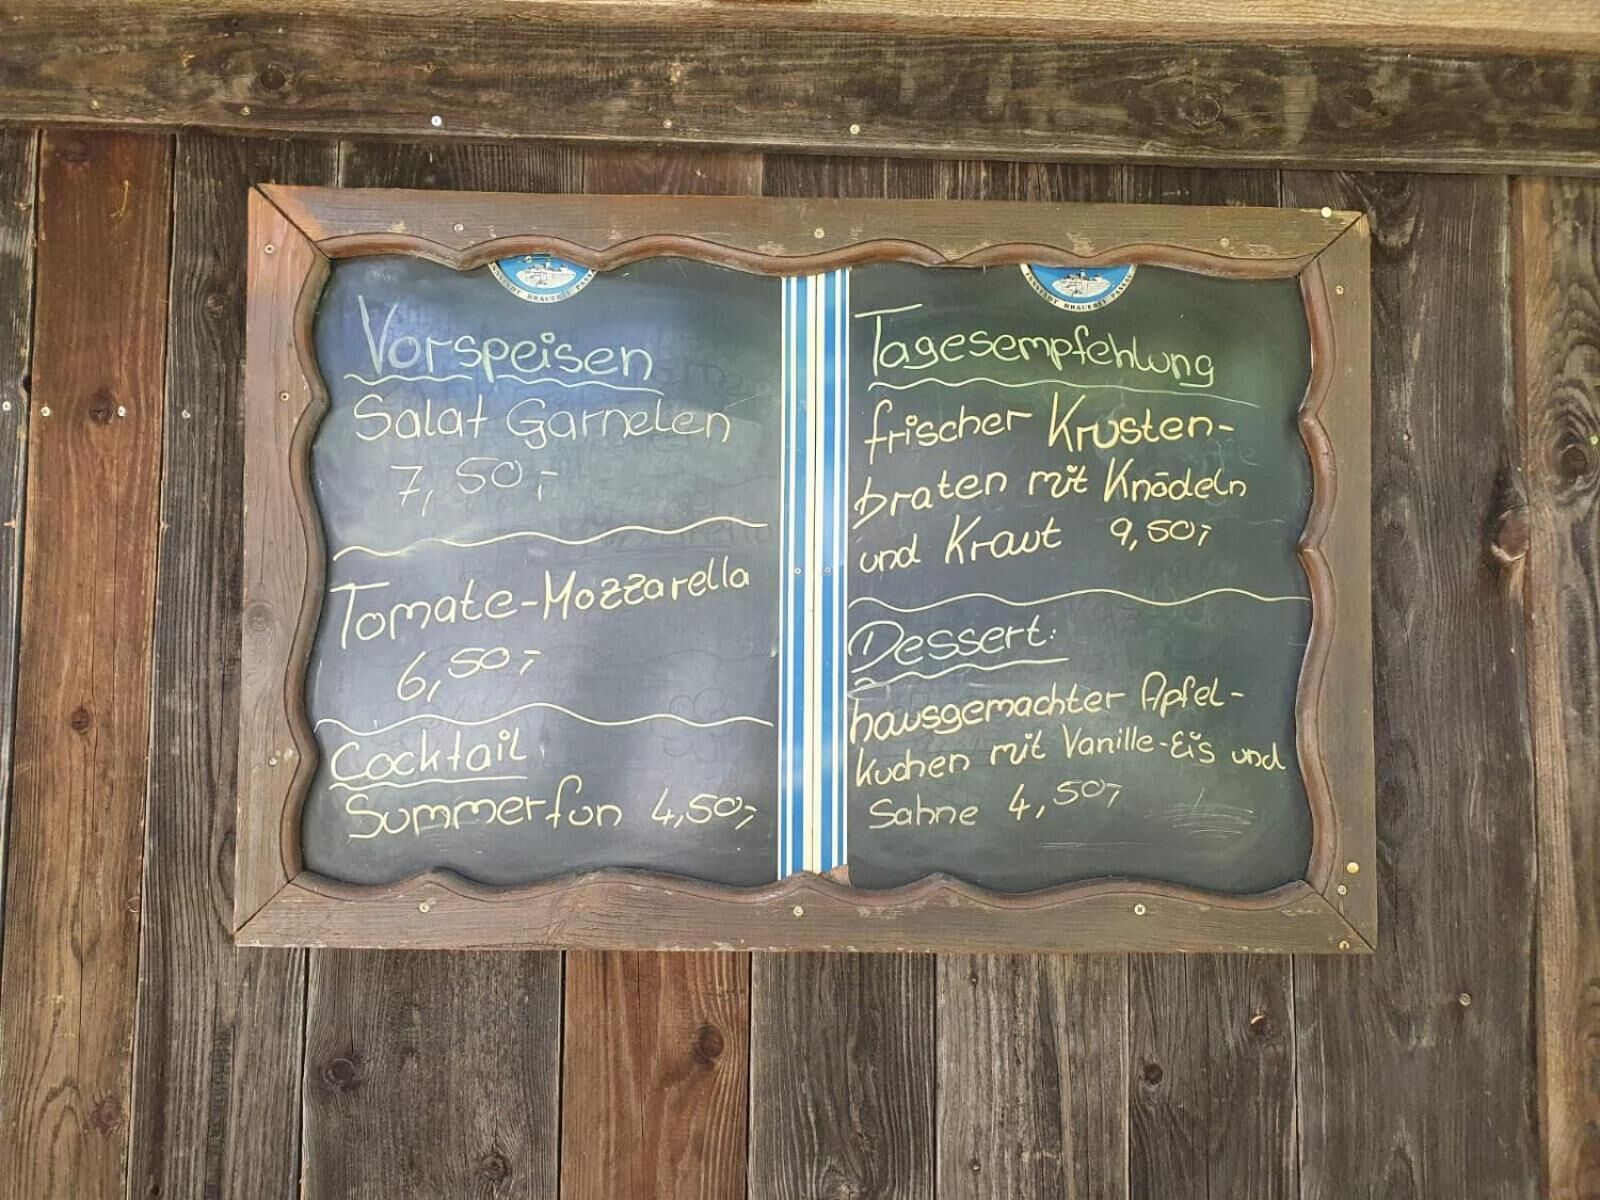 INNSTADT BRAUEREI PASSAU
Vorspeisen
Salat Garnelen
7,50,-
Tomate-Mozzarella
6,50,-
Cocktail
Summerfun 4,50,-
INNSTADT BRAUEREI PASSAU
Tagesempfehlung
frischer Krusten-
braten mit Knödeln
und Kraut 9,50,-
Dessert:
hausgemachter Apfel-
kuchen mit Vanille-Eis und
Sahne 4,50,-